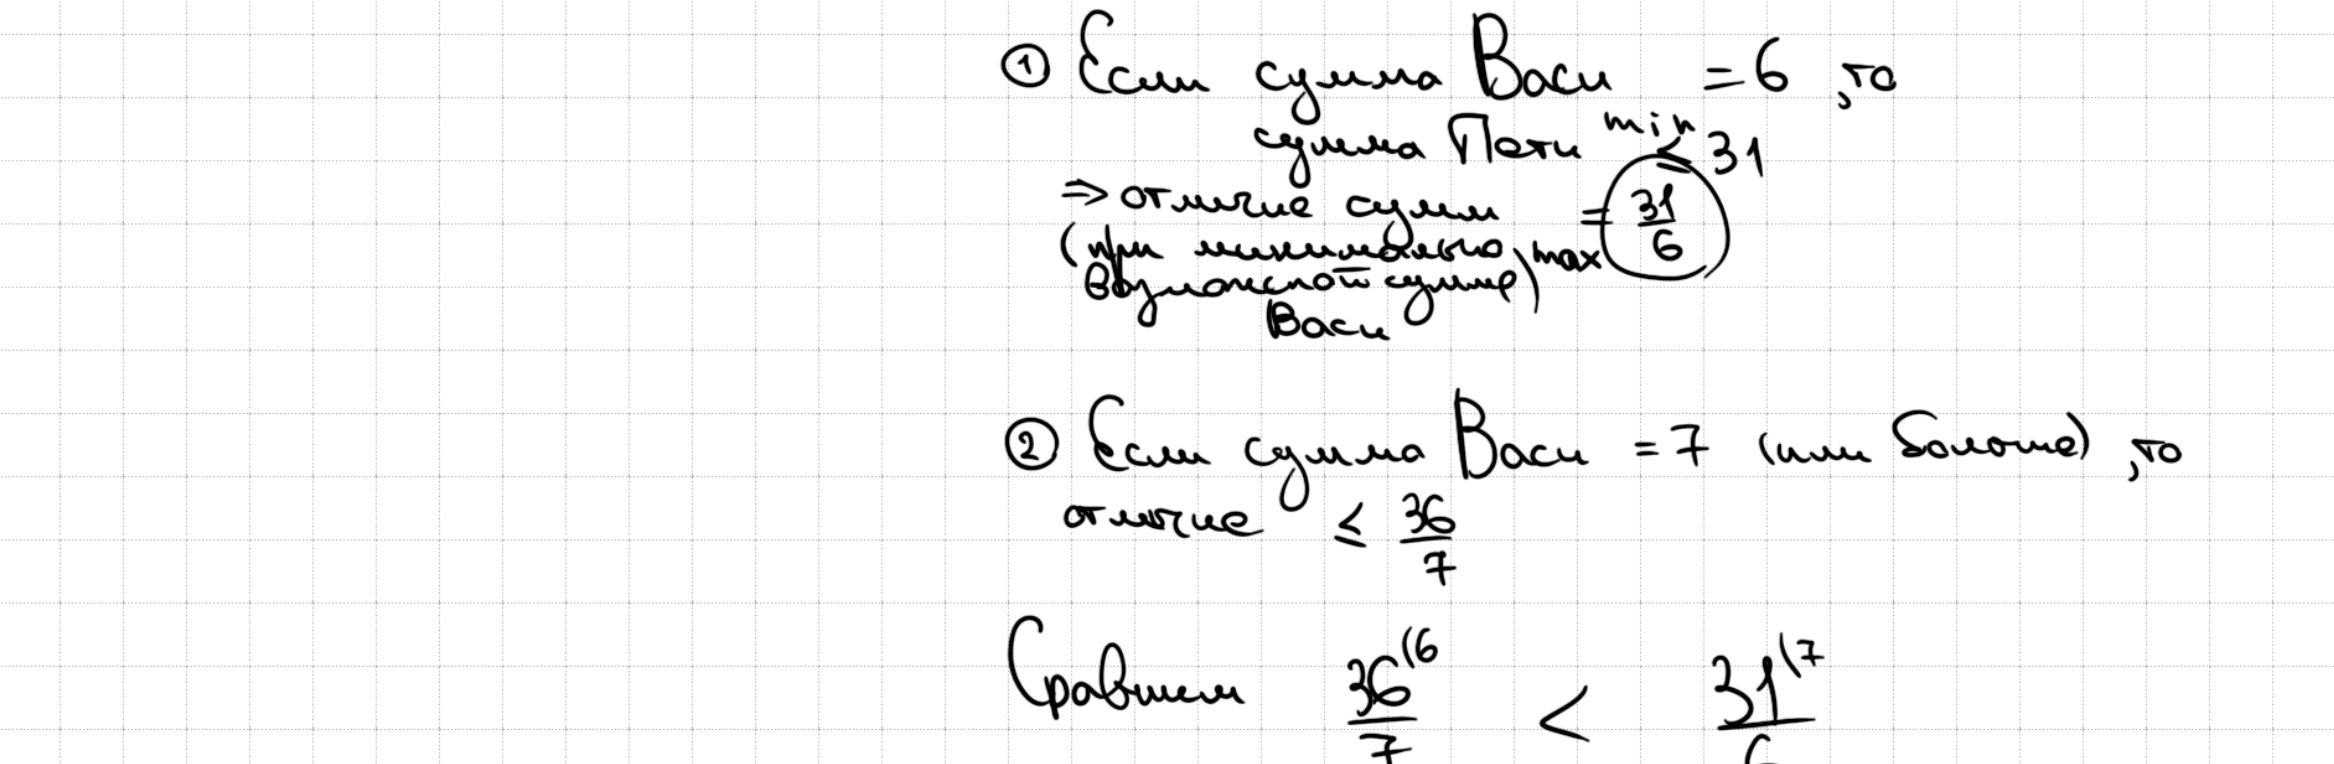 ① Если сумма Васи = 6, то
сумма Пети min ≤ 31
⇒ отличие сумм = 31/6
(при минимально max
возможной сумме)
Васи
② Если сумма Васи = 7 (или больше), то
отличие ≤ 36/7
Сравним 36(6/7 < 31(7/6